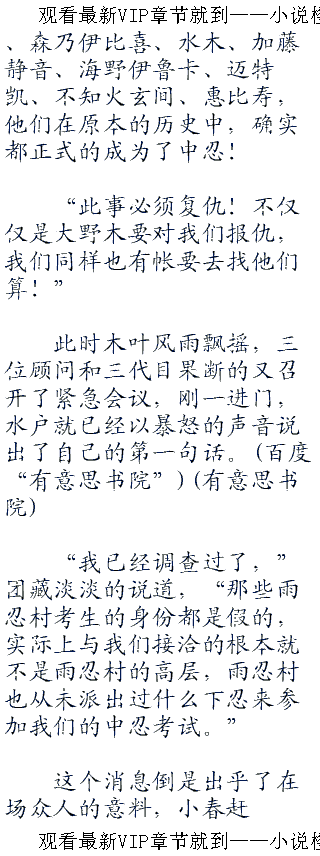 观看最新VIP章节就到——小说
、森乃伊比喜、水木、加藤
静音、海野伊鲁卡、迈特
凯、不知火玄间、惠比寿，
他们在原本的历史中，确实
都正式的成为了中忍！
“此事必须复仇！不仅
仅是大野木要对我们报仇，
我们同样也有帐要去找他们
算！”
此时木叶风雨飘摇，三
位顾问和三代目果断的又召
开了紧急会议，刚一进门，
水户就已经以暴怒的声音说
出了自己的第一句话。(百度
“有意思书院”)(有意思书
院)
“我已经调查过了，”
团藏淡淡的说道，“那些雨
忍村考生的身份都是假的，
实际上与我们接洽的根本就
不是雨忍村的高层，雨忍村
也从未派出过什么下忍来参
加我们的中忍考试。”
这个消息倒是出乎了在
场众人的意料，小春赶
观看最新VIP章节就到——小说